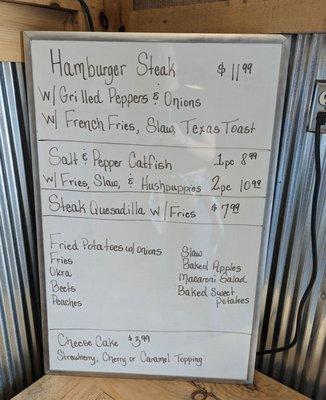 Hamburger Steak $11.99
W/ Grilled Peppers & Onions
W/ French Fries, Slaw, Texas Toast
Salt & Pepper Catfish 1pc 8.99
W/ Fries, Slaw, & Hushpuppies 2pc 10.99
Steak Quesadilla w/ Fries $7.99
Fried Potatoes w/ onions
Fries
Okra
Beets
Peaches
Slaw
Baked Apples
Macaroni Salad
Baked Sweet
Potatoes
Cheese Cake $3.99
Strawberry, Cherry or Caramel Topping